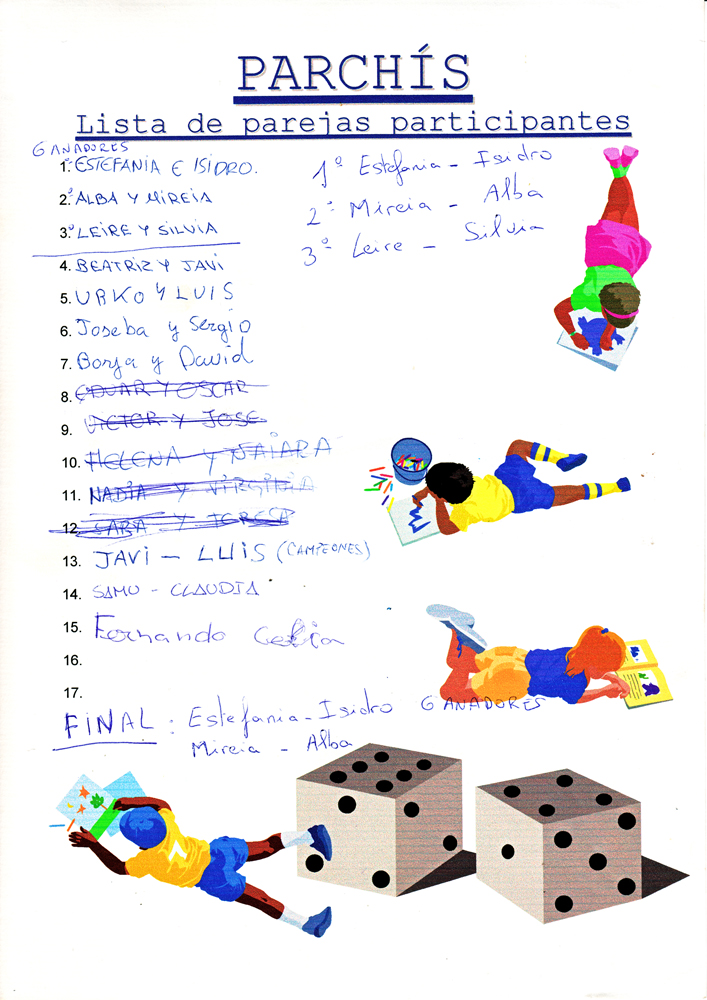 PARCHÍS
Lista de parejas participantes
GANADORES
1.º ESTEFANIA E ISIDRO.
2.º ALBA Y MIREIA
3.º LEIRE Y SILVIA
4. BEATRIZ Y JAVI
5. URKO Y LUIS
6. Joseba y Sergio
7. Borja y David
8. EDUAR Y OSCAR
9. VICTOR Y JOSE
10. HELENA Y NAIARA
11. NADIA Y VIRGINIA
12. SARA Y TERESA
13. JAVI - LUIS (CAMPEONES)
14. SAMU - CLAUDIA
15. Fernando Celia
16.
17.
1º Estefania - Isidro
2º Mireia - Alba
3º Leire - Silvia
FINAL : Estefania - Isidro GANADORES
Mireia - Alba